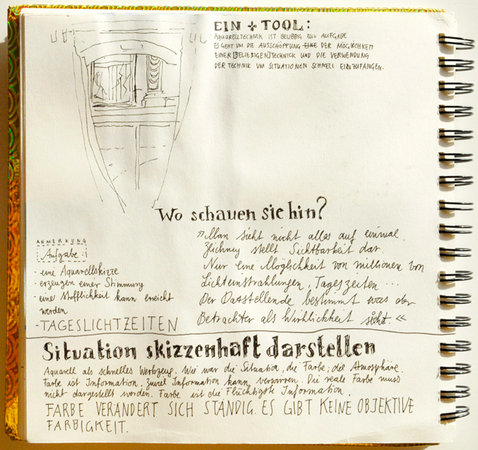 EIN + TOOL:
AQUARELLTECHNIK IST BELIEBIG ALS AUFGABE
ES GEHT UM DIE AUSSCHÖPFUNG EINE DER MÖGLICHKEIT
EINER (BELIEBIGEN) TECHNIK UND DIE VERWENDUNG
DER TECHNIK UM SITUATIONEN SCHNELL EINZUFANGEN.
Wo schauen sie hin?
ANMERKUNG
Aufgabe:
- eine Aquarellskizze
- erzeugen einer Stimmung
- eine Stofflichkeit kann erreicht
werden
- TAGESLICHTZEITEN
"Man sieht nicht alles auf einmal.
Zeichnung stellt Sichtbarkeit dar
Nur eine Möglichkeit von millionen von
Lichteinstrahlungen, Tageszeiten...
Der Darstellende bestimmt was der
Betrachter als Wirklichkeit sieht. «
Situation skizzenhaft darstellen
Aquarell als schnelles Werkzeug. Wie war die Situation, die Farbe, die Atmosphäre.
Farbe ist Information, zuviel Information kann verwirren. Die reale Farbe muss
nicht dargestellt werden. Farbe ist die Flüchtigste Information.
FARBE VERÄNDERT SICH STÄNDIG. ES GIBT KEINE OBJEKTIVE
FARBIGKEIT.